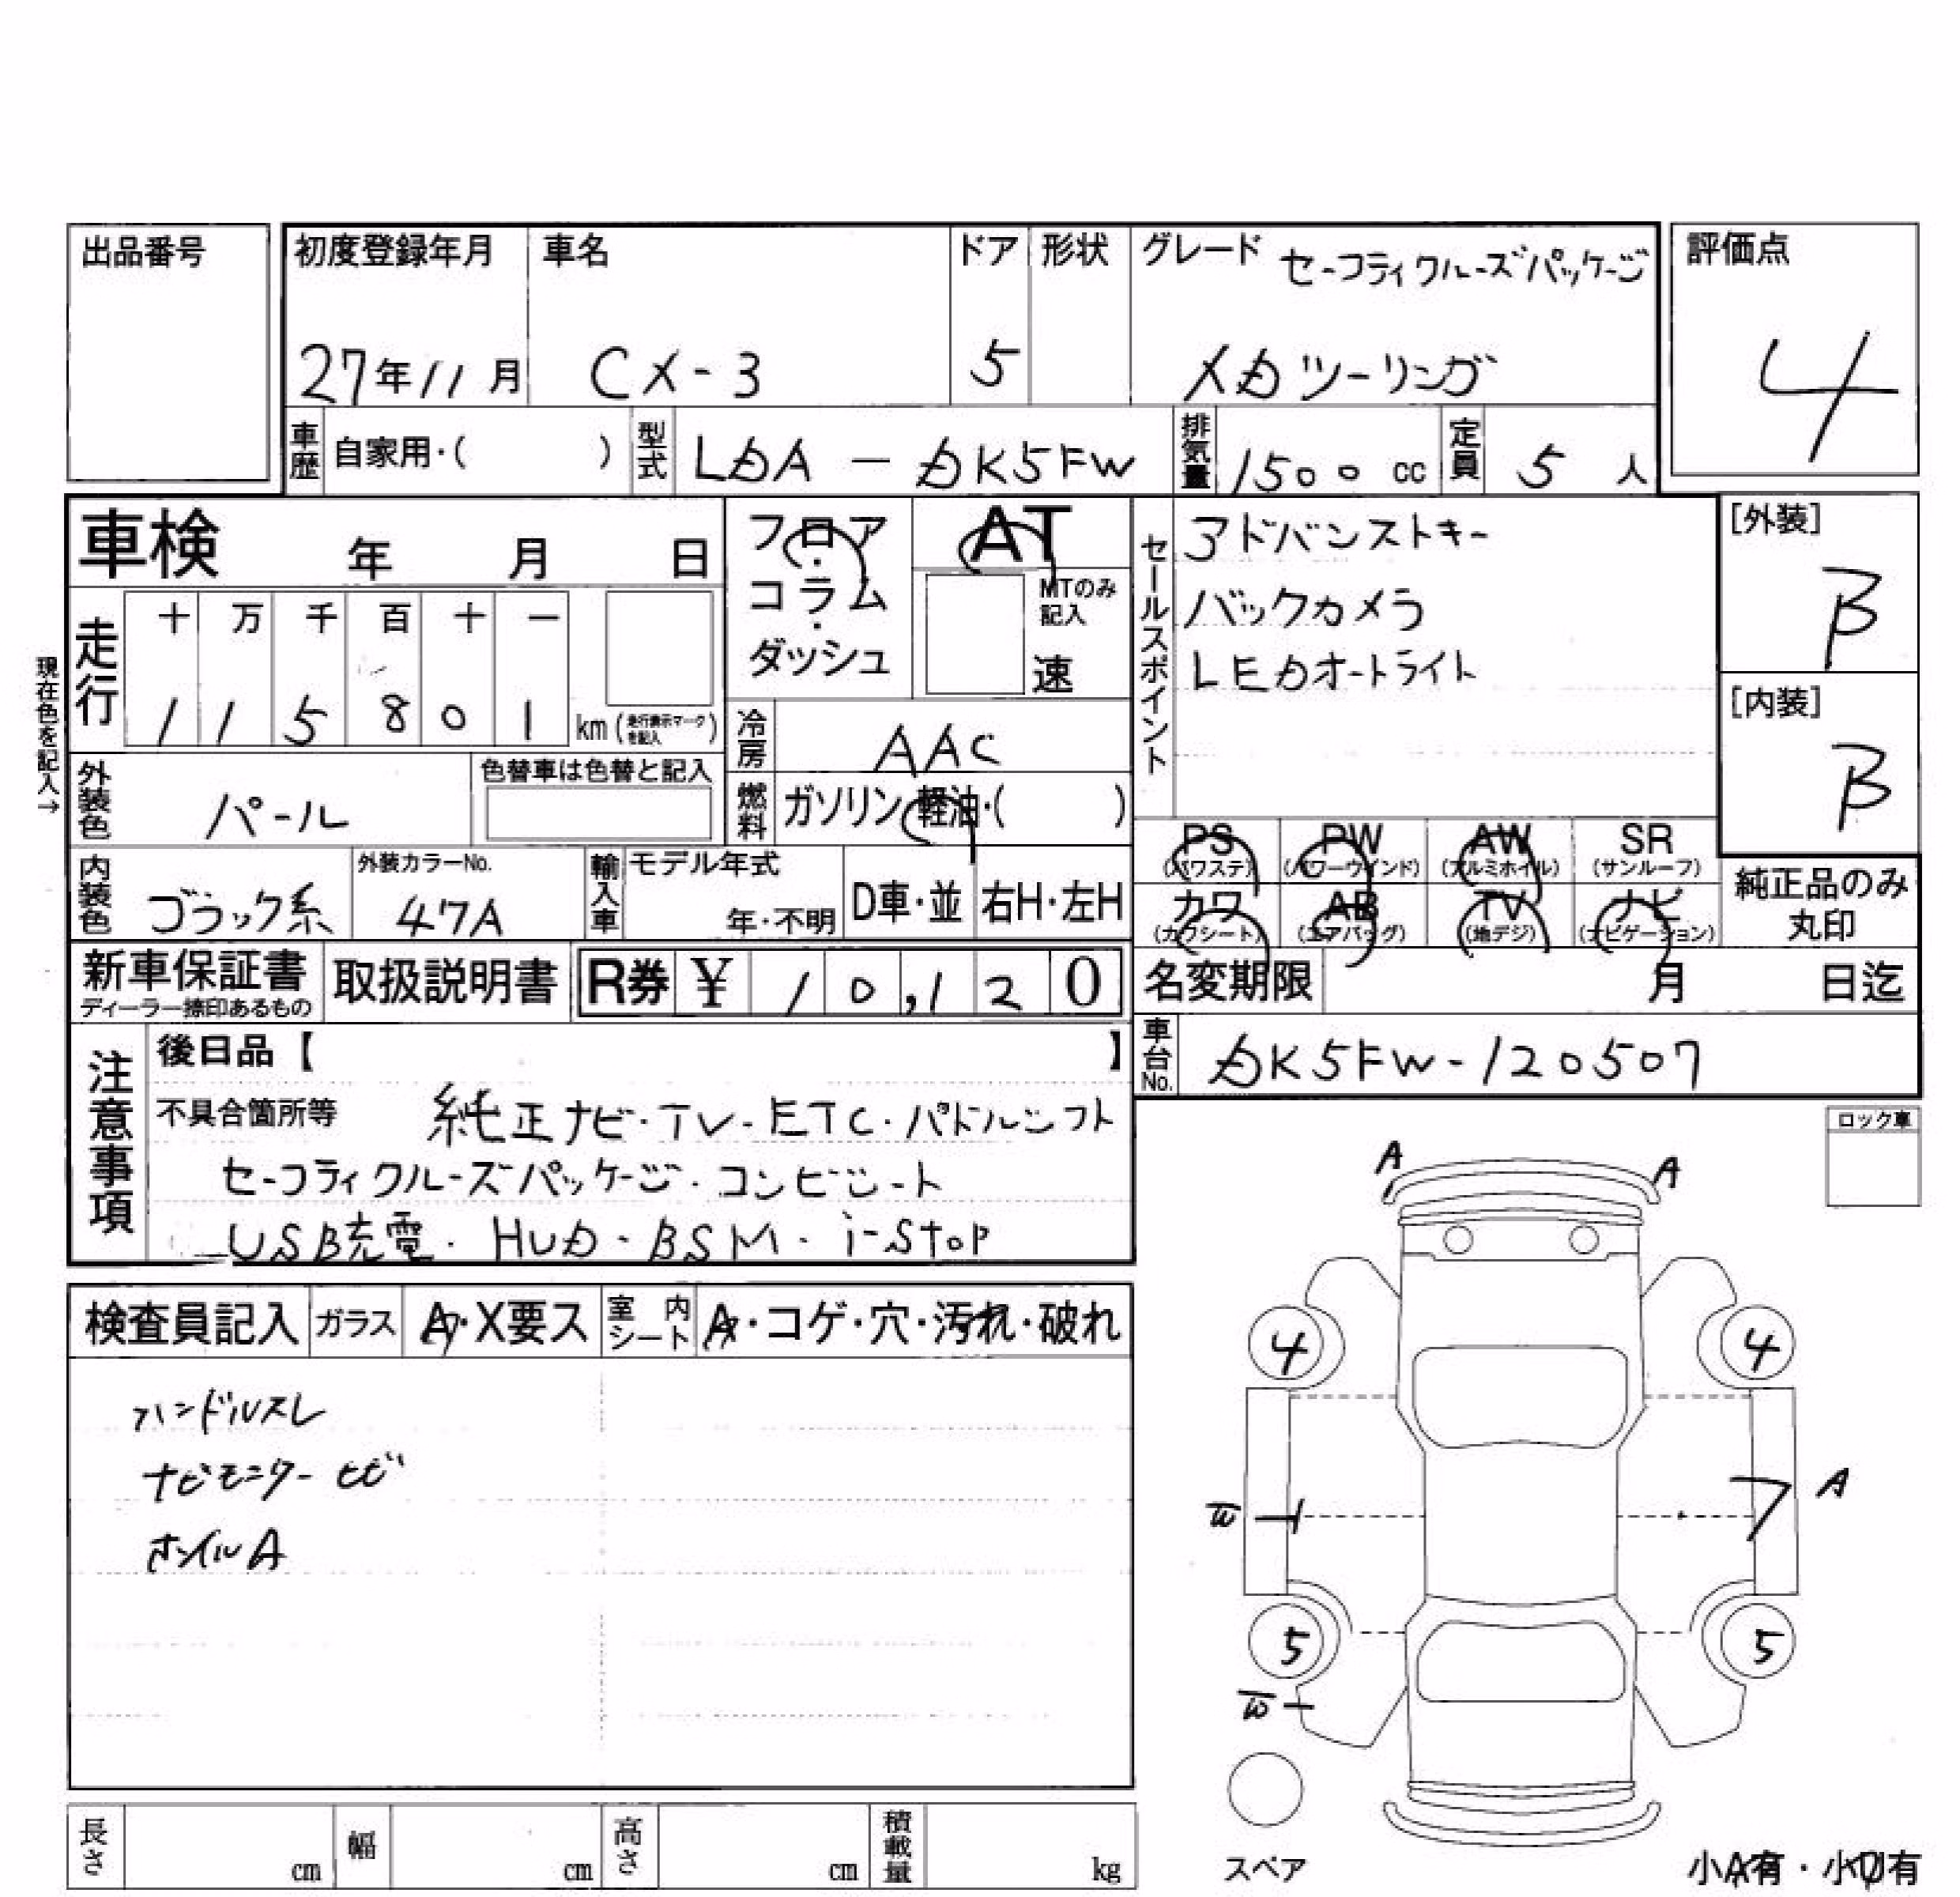 出品番号
初度登録年月 車名 ドア 形状 グレード セーフティクルーズパッケージ 評価点
27年11月 CX-3 5 XDツーリング 4
車歴 自家用・( ) 型式 LDA-DK5FW 排気量 1500 cc 定員 5 人
車検 年 月 日
フロア・コラム・ダッシュ
AT
MTのみ記入
速
セールスポイント
アドバンストキー
バックカメラ
LEDオートライト
[外装]
B
[内装]
B
現在色を記入→
走行 十 万 千 百 十 一
1 1 5 8 0 1 km (走行表示マークを記入)
冷房 AAC
外装色 パール 色替車は色替と記入
燃料 ガソリン・軽油・( )
PS PW AW SR
(パワステ) (パワーウインド) (アルミホイル) (サンルーフ)
カワ AB TV ナビ
(カワシート) (エアバッグ) (地デジ) (ナビゲーション)
純正品のみ
丸印
内装色 ブラック系 外装カラーNo. 47A 輸入車 モデル年式 年・不明 D車・並 右H・左H
新車保証書 取扱説明書 R券 ¥ 10,120
ディーラー捺印あるもの
名変期限 月 日迄
車台No. DK5FW-120507
注意事項
後日品【 】
不具合箇所等 純正ナビ・TV・ETC・パドルシフト
セーフティクルーズパッケージ・コンビシート
USB充電・HUD・BSM・i-stop
ロック車
A A
検査員記入 ガラス A・X要ス 室内シート A・コゲ・穴・汚れ・破れ
ハンドルスレ
ナビモニターヒビ
ホイルA
4 4
W A
5 5
W
スペア
長さ cm 幅 cm 高さ cm 積載量 kg
小A有・小U有